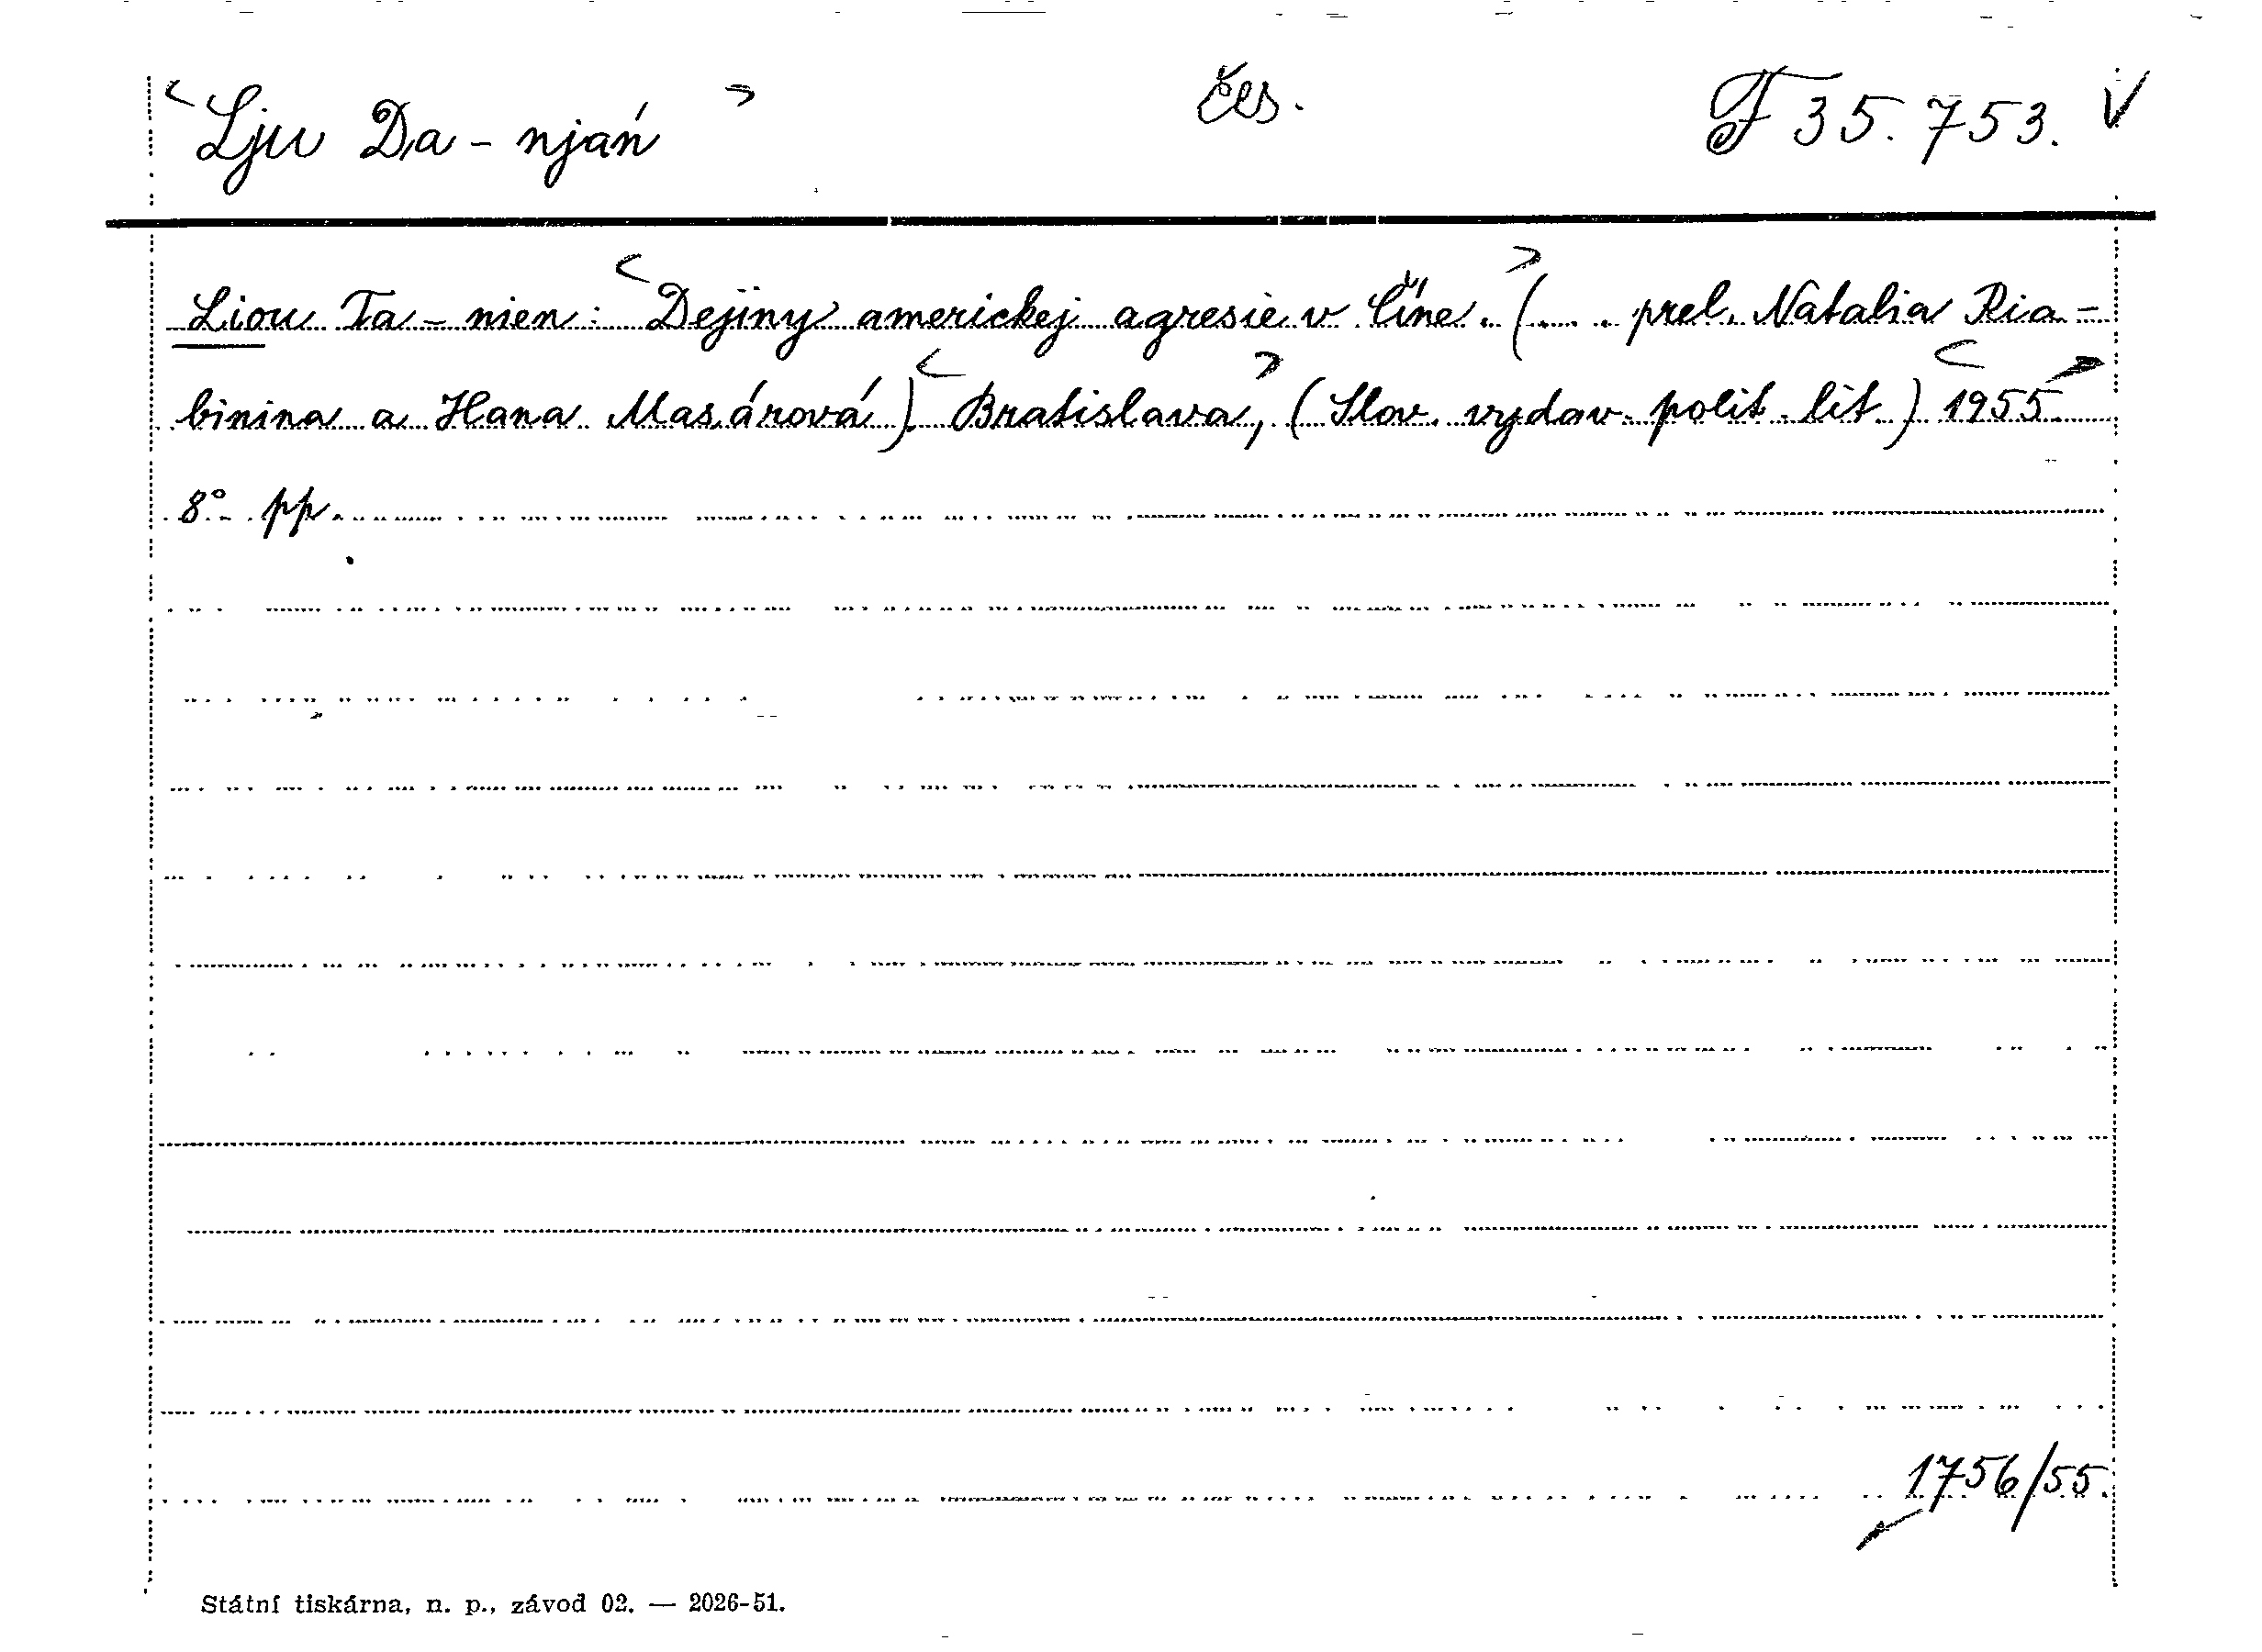 <Lju Da-njań> čes. F 35.753. V
Liou Ta-nien: <Dejiny americkej agresie v Číne.> (... . prel. Natalia Ria-
binina a Hana Masárová). <Bratislava,> (Slov. vydav. polit. lit.) <1955>
8° pp.
1756/55.
Státní tiskárna, n. p., závod 02. — 2026-51.